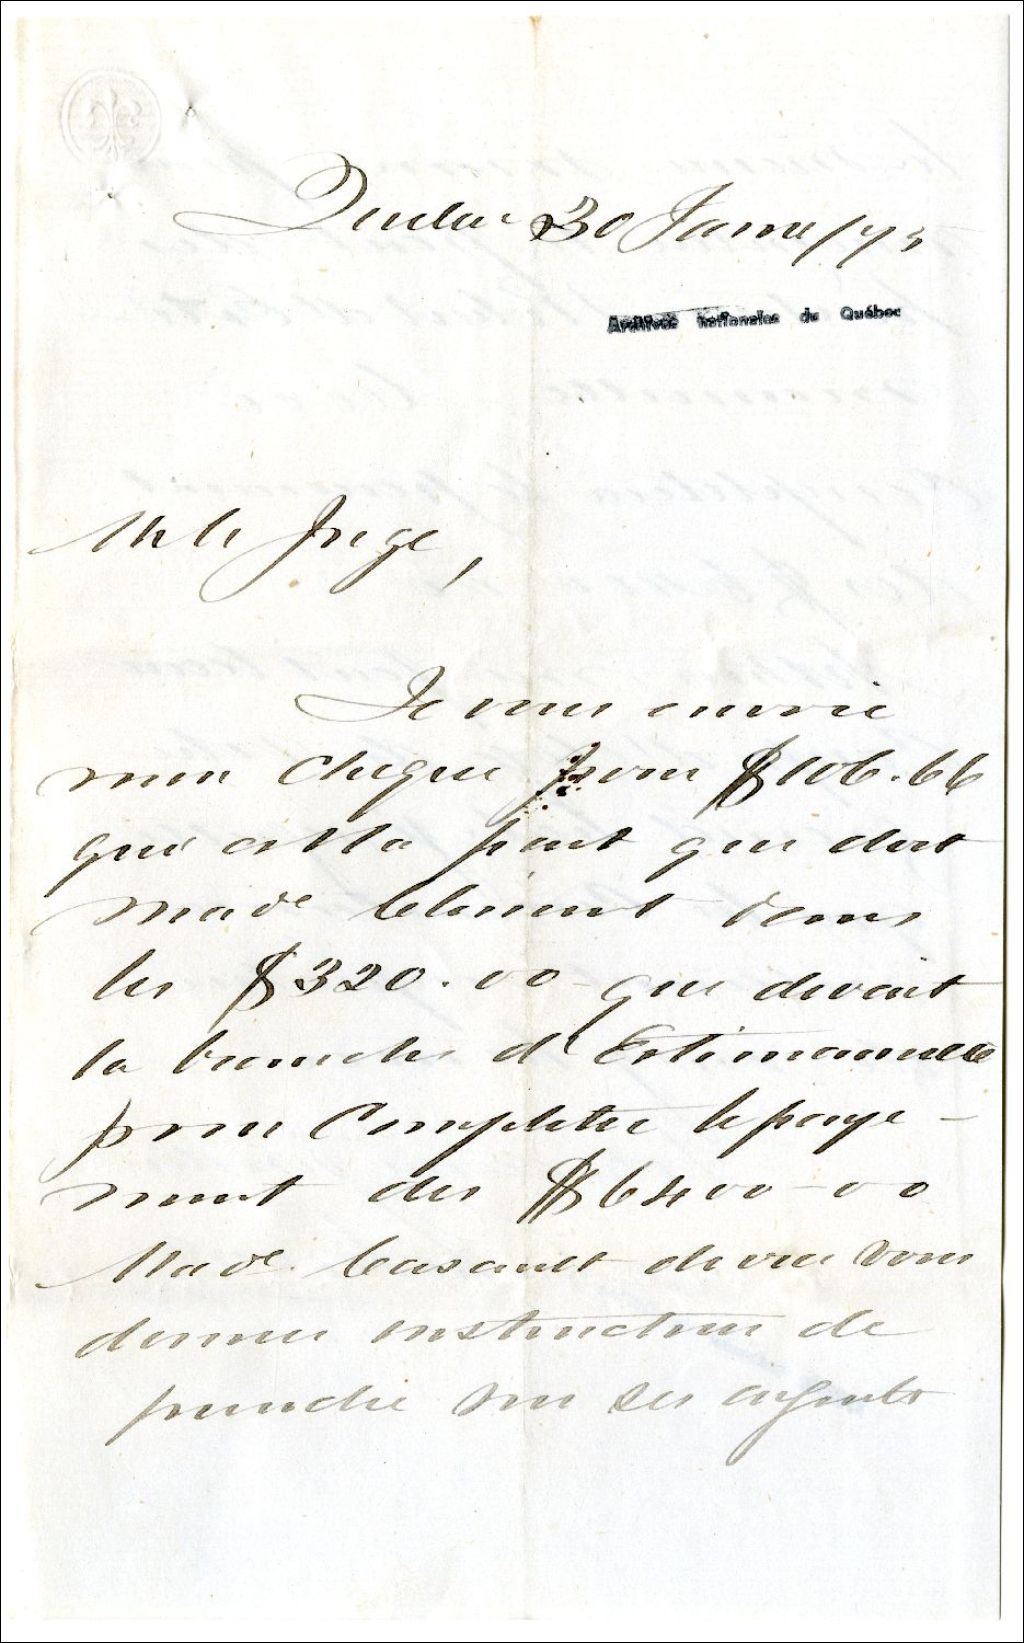 Québec 30 Janv/73
Archives nationales du Québec
M le Juge,
Je vous envoie
mon Cheque pour $106.66
qui est la part que doit
Made Clément dans
les $320.00 que devait
la branche d'Estimauville
pour Completer le paye-
ment des $6400-00
Made. Casault devra vous
donner instructions de
prendre sur ses argents